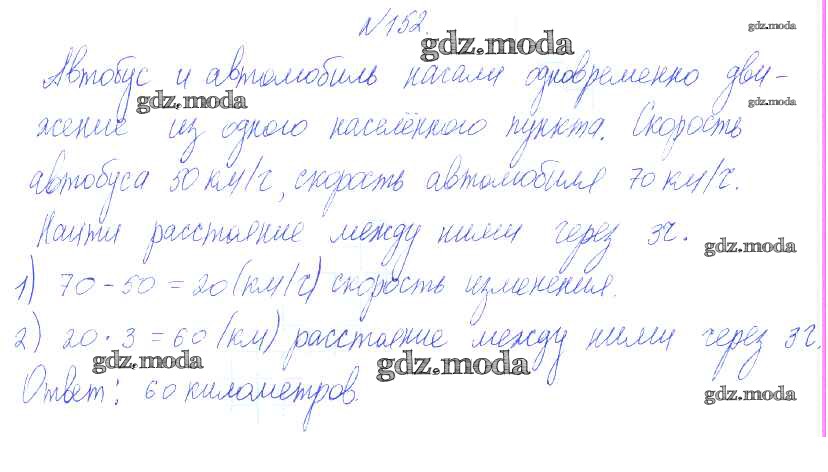 №152.
gdz.moda
gdz.moda
Автобус и автомобиль начали одновременно дви-
gdz.moda
gdz.moda
жение из одного населённого пункта. Скорость
автобуса 50 км/ч, скорость автомобиля 70 км/ч.
Найти расстояние между ними через 3ч.
gdz.moda
1) 70-50=20(км/ч) скорость изменения.
2) 20·3=60(км) расстояние между ними через 3ч.
gdz.moda
gdz.moda
Ответ: 60 километров.
gdz.moda